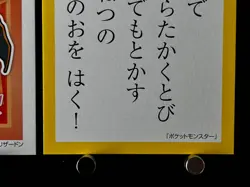 で
らたかくとび
でもとかす
ねつの
のおを はく!
「ポケットモンスター」
リザードン